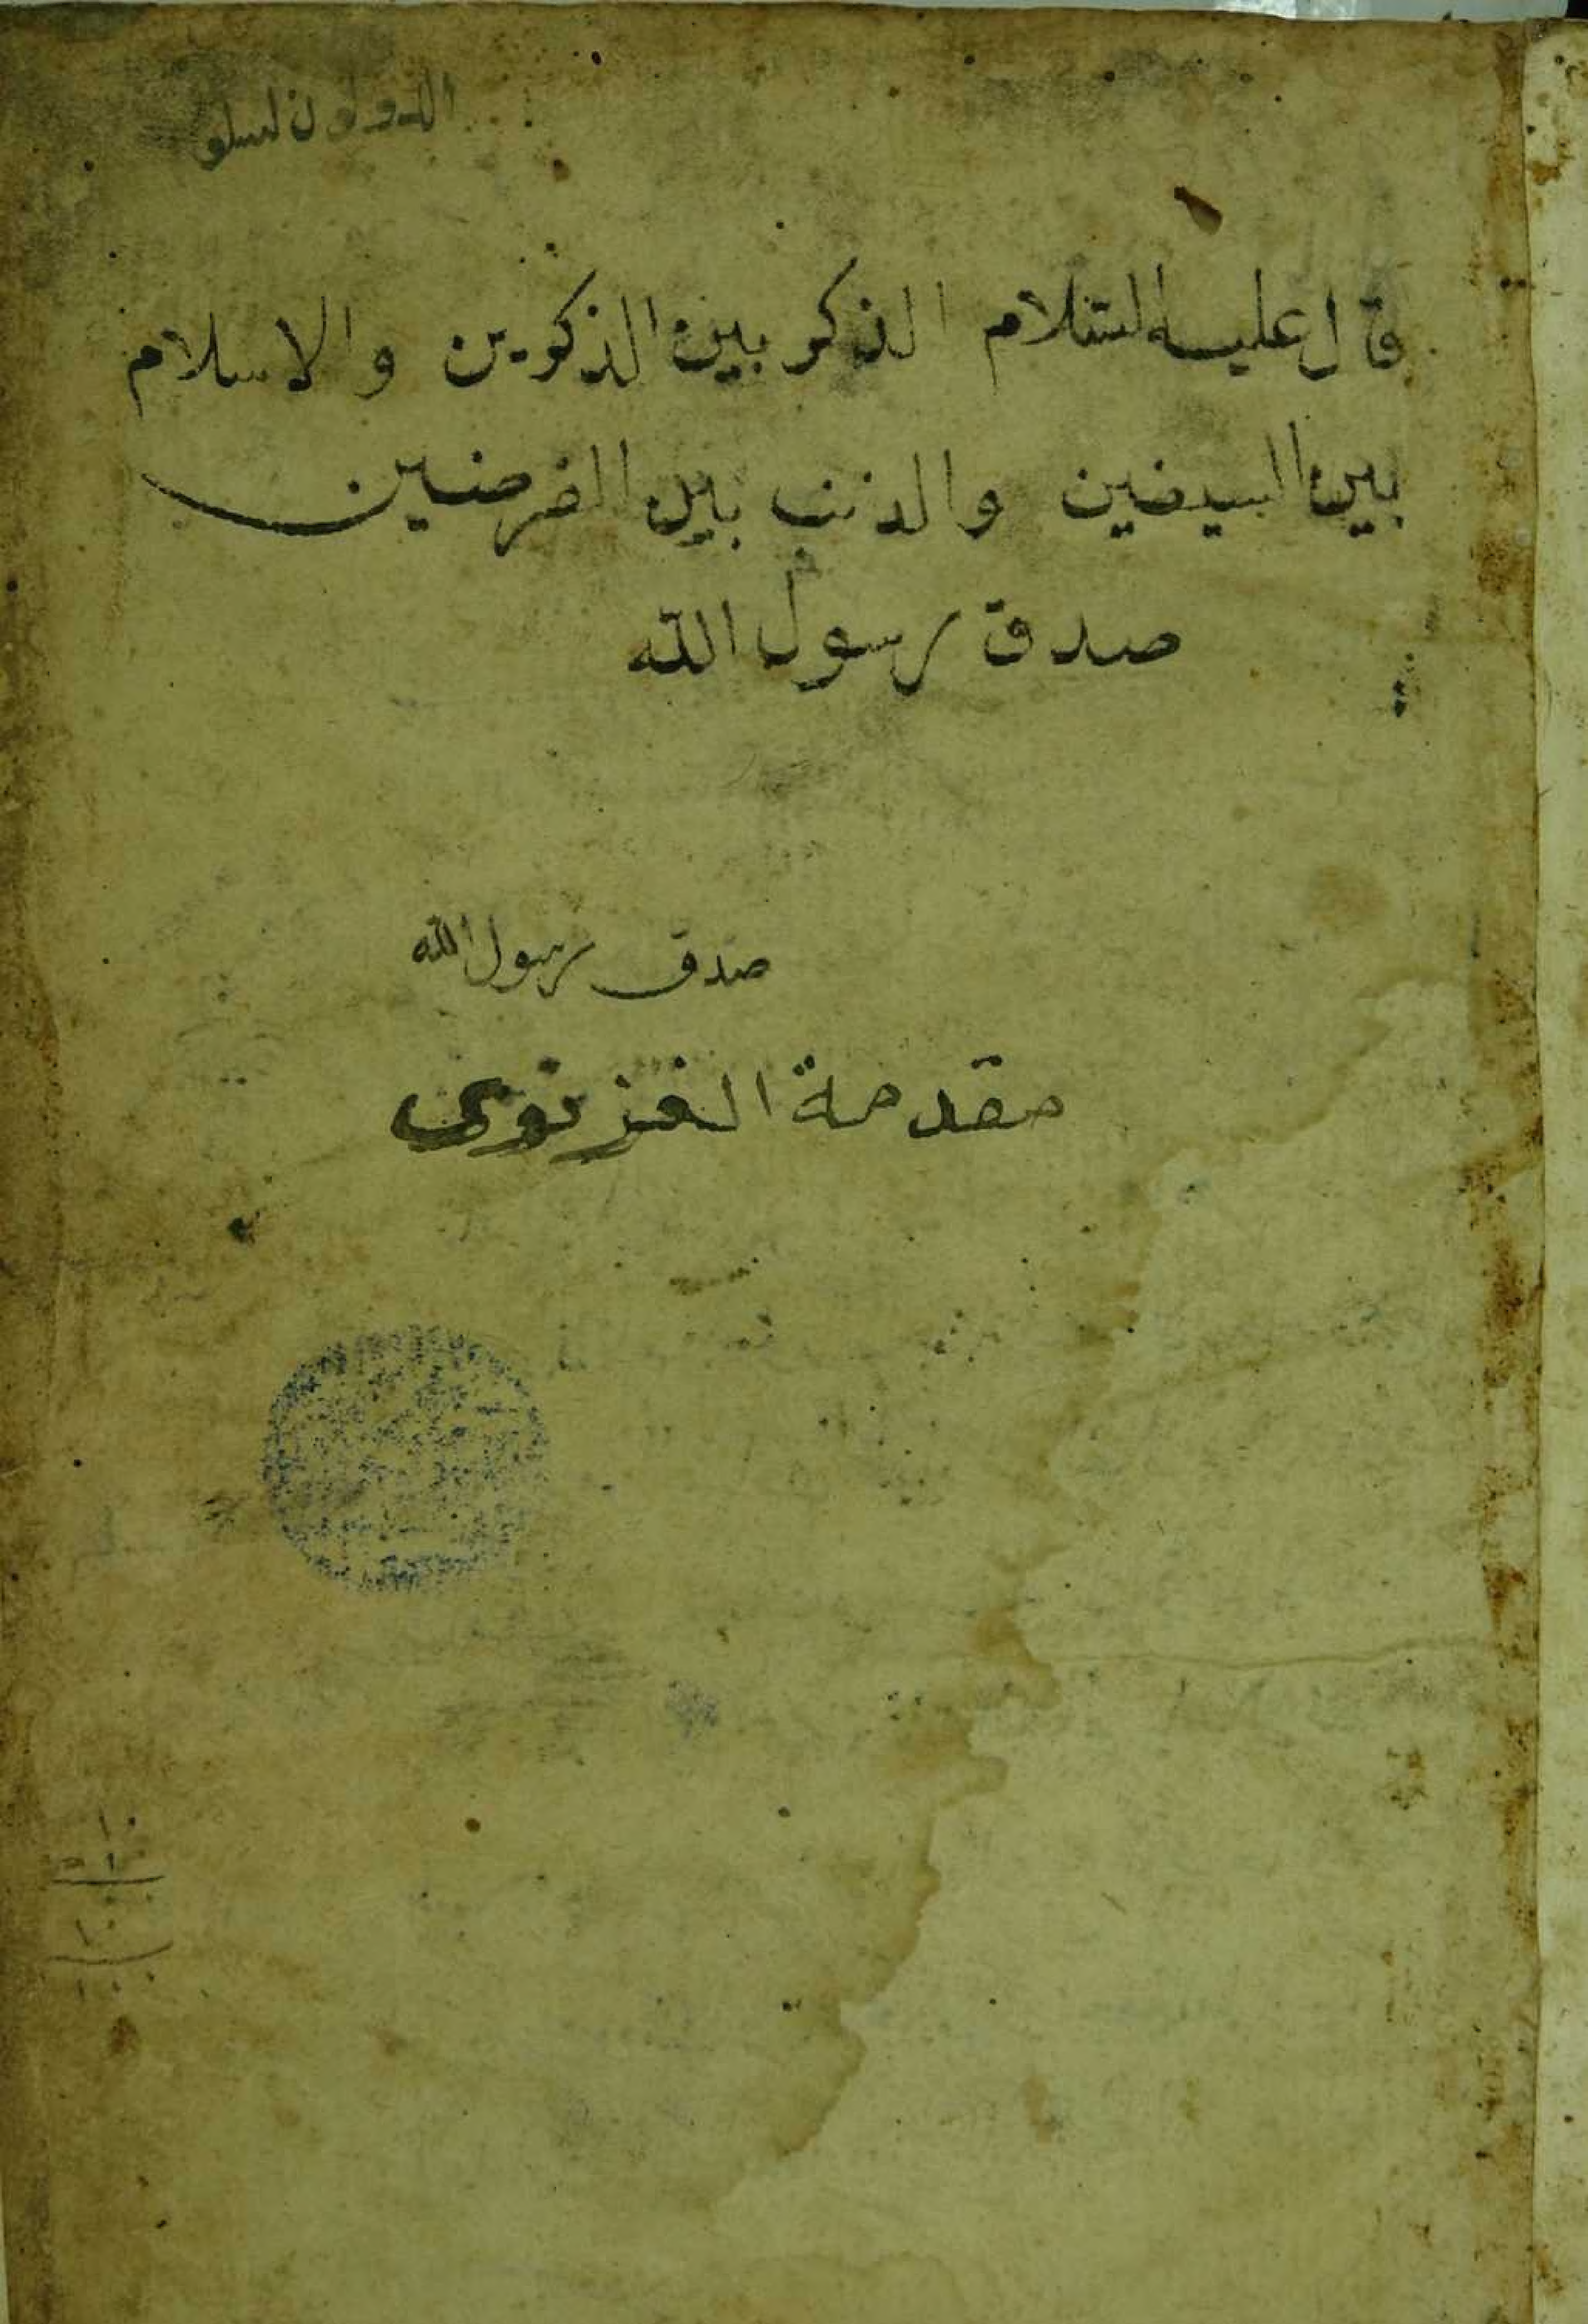 قال عليه السلام الذكر بين الذكرين والاسلام
بين السيفين والذنب بين الفرضين
صدق رسول الله
صدق رسول الله
مقدمة الغزنوى
١٠
١٠
١٠٠